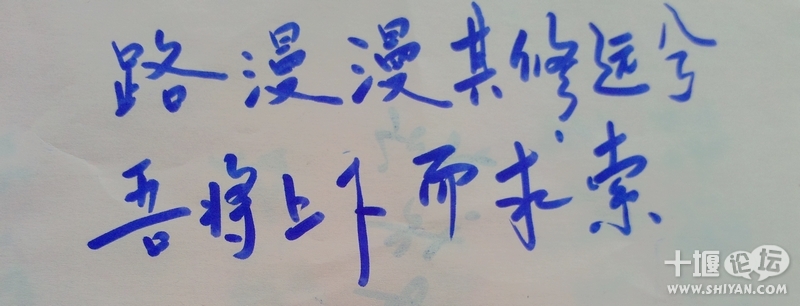 路漫漫其修远兮
吾将上下而求索
十堰论坛
WWW.SHIYAN.COM